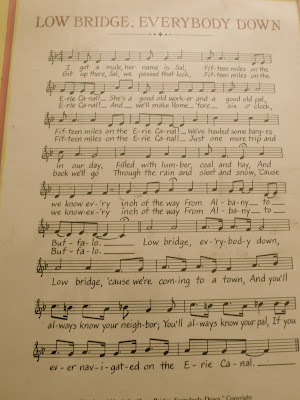 LOW BRIDGE, EVERYBODY DOWN
I got a mule, her name is Sal, Fif-teen miles on the
Git up there, Sal, we passed that lock, Fif-teen miles on the
E-rie Ca-nal! She's a good old work-er and a good old pal,
E-rie Ca-nal! And we'll make Rome 'fore six o' clock,
Fif-teen miles on the E-rie Ca-nal! We've hauled some barg-es
Fif-teen miles on the E-rie Ca-nal! Just one more trip and
in our day, Filled with lum-ber, coal and hay, And
back we'll go Through the rain and sleet and snow, 'Cause
we know ev-'ry inch of the way From Al-ba-ny to
we know ev-'ry inch of the way From Al-ba-ny to
Buf-fa-lo. Low bridge, ev-'ry-bod-y down,
Buf-fa-lo.
Low bridge, 'cause we're com-ing to a town, And you'll
al-ways know your neigh-bor; You'll al-ways know your pal, If you
ev-er nav-i-gat-ed on the E-rie Ca-nal.
Everybody Down," Copyright